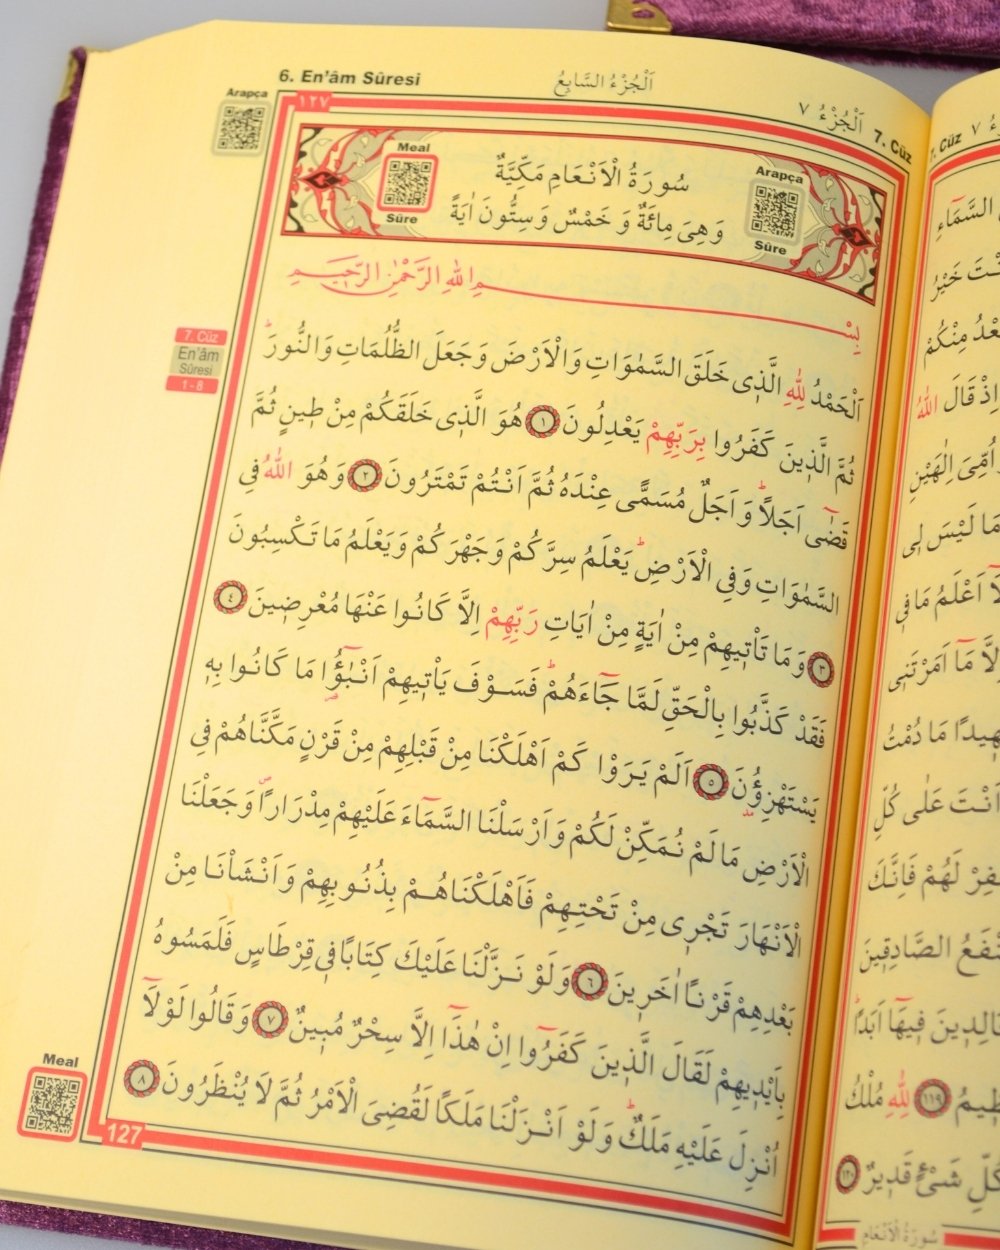 6. En'âm Sûresi
اَلْجُزْءُ السَّابِعُ
اَلْجُزْءُ ٧
7. Cüz
Arapça
١٢٧
Meal
Sûre
سُورَةُ الْاَنْعَامِ مَكِّيَّةٌ
وَهِىَ مِائَةٌ وَ خَمْسٌ وَسِتُّونَ اٰيَةً
Arapça
Sûre
بِسْمِ اللهِ الرَّحْمٰنِ الرَّحِيمِ
7. Cüz
En'âm
Sûresi
1 - 8
اَلْحَمْدُ لِلّٰهِ الَّذٖى خَلَقَ السَّمٰوَاتِ وَالْاَرْضَ وَجَعَلَ الظُّلُمَاتِ وَالنُّورَ
ثُمَّ الَّذٖينَ كَفَرُوا بِرَبِّهِمْ يَعْدِلُونَ ١ هُوَ الَّذٖى خَلَقَكُمْ مِنْ طٖينٍ ثُمَّ
قَضٰٓى اَجَلًا وَاَجَلٌ مُسَمًّى عِنْدَهُ ثُمَّ اَنْتُمْ تَمْتَرُونَ ٢ وَهُوَ اللّٰهُ فِى
السَّمٰوَاتِ وَفِى الْاَرْضِ يَعْلَمُ سِرَّكُمْ وَجَهْرَكُمْ وَيَعْلَمُ مَا تَكْسِبُونَ
٣ وَمَا تَاْتٖيهِمْ مِنْ اٰيَةٍ مِنْ اٰيَاتِ رَبِّهِمْ اِلَّا كَانُوا عَنْهَا مُعْرِضٖينَ ٤
فَقَدْ كَذَّبُوا بِالْحَقِّ لَمَّا جَٓاءَهُمْ فَسَوْفَ يَاْتٖيهِمْ اَنْبٰٓؤُا مَا كَانُوا بِهٖ
يَسْتَهْزِؤُنَ ٥ اَلَمْ يَرَوْا كَمْ اَهْلَكْنَا مِنْ قَبْلِهِمْ مِنْ قَرْنٍ مَكَّنَّاهُمْ فِى
الْاَرْضِ مَا لَمْ نُمَكِّنْ لَكُمْ وَاَرْسَلْنَا السَّمَٓاءَ عَلَيْهِمْ مِدْرَارًا وَجَعَلْنَا
الْاَنْهَارَ تَجْرٖى مِنْ تَحْتِهِمْ فَاَهْلَكْنَاهُمْ بِذُنُوبِهِمْ وَاَنْشَاْنَا مِنْ
بَعْدِهِمْ قَرْنًا اٰخَرٖينَ ٦ وَلَوْ نَزَّلْنَا عَلَيْكَ كِتَابًا فٖى قِرْطَاسٍ فَلَمَسُوهُ
بِاَيْدٖيهِمْ لَقَالَ الَّذٖينَ كَفَرُٓوا اِنْ هٰذَٓا اِلَّا سِحْرٌ مُبٖينٌ ٧ وَقَالُوا لَوْلَٓا
اُنْزِلَ عَلَيْهِ مَلَكٌ وَلَوْ اَنْزَلْنَا مَلَكًا لَقُضِىَ الْاَمْرُ ثُمَّ لَا يُنْظَرُونَ ٨
Meal
127
7. Cüz
٧
السَّمَٓاءِ
خَيْرُ
مِنْكُمْ
اِذْ قَالَ اللّٰهُ
اُمِّىَ اِلٰهَيْنِ
مَا لَيْسَ لٖى
اَعْلَمُ مَا فٖى
مَٓا اَمَرْتَنٖى
مَا دُمْتُ
اَنْتَ عَلٰى كُلِّ
لَهُمْ فَاِنَّكَ
الصَّادِقٖينَ
فٖيهَٓا اَبَدًا
١١٩ لِلّٰهِ مُلْكُ
شَىْءٍ قَدٖيرٌ ١٢٠
سُورَةُ الْاَنْعَامِ